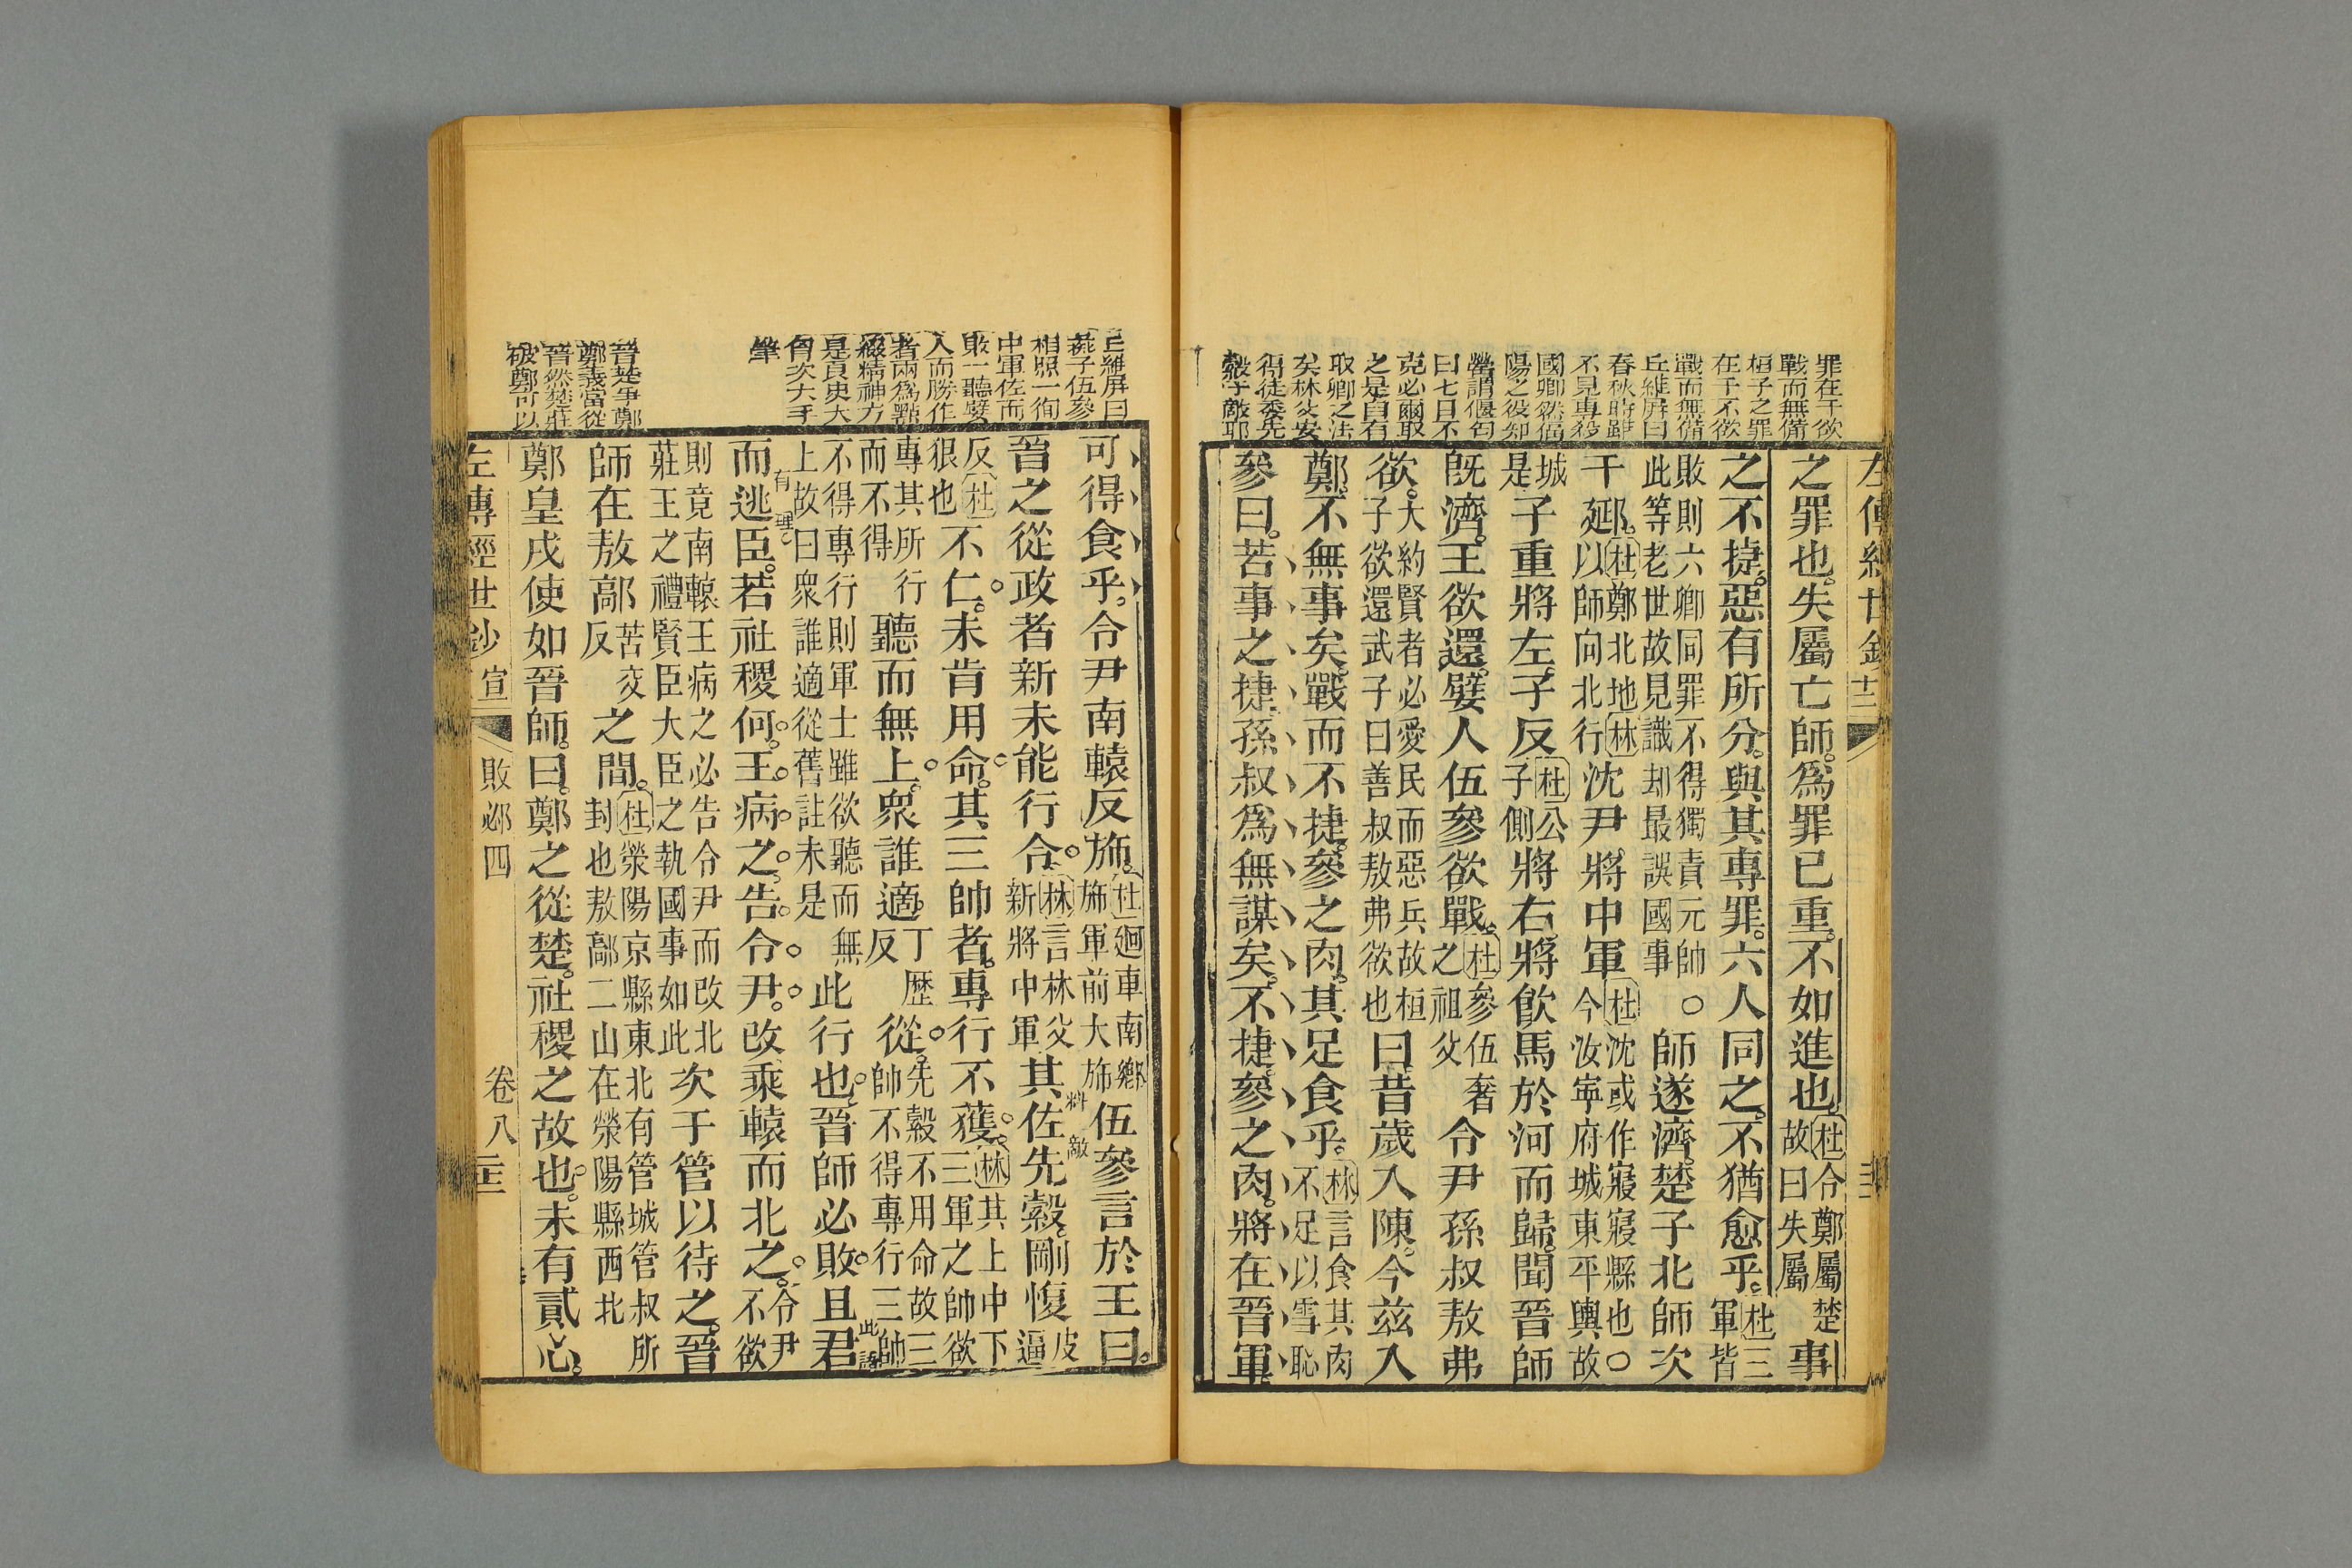 罪在于欲
戰而無備
桓子之罪
在于不欲
戰而無備
丘維屏曰
春秋時雖
不見專殺
國卿然偪
陽之役知
罃謂偃匄
曰七日不
克必爾取
之是自有
取卿之法
矣林父安
得徒委先
縠于敵耶
之罪也。失屬亡師。爲罪已重。不如進也。
杜令鄭屬楚
故曰失屬
事
之不捷。惡有所分。與其專罪。六人同之。不猶愈乎。
杜三
軍皆
敗則六卿同罪不得獨責元帥
此等老世故見識却最誤國事
○師遂濟。楚子北師次
于郔。
杜鄭北地林
延以師向北行
沈尹將中軍
杜沈或作寢寢縣也○
今汝寧府城東平輿故
城
是
子重將左。子反
杜公
子側
將右。將飮馬於河而歸。聞晉師
旣濟。王欲還。嬖人伍參欲戰。
杜參伍奢
之祖父
令尹孫叔敖弗
欲。
大約賢者必愛民而惡兵故桓
子欲還武子曰善叔敖弗欲也
曰昔歲入陳。今兹入
鄭。不無事矣。戰而不捷。參之肉。其足食乎。
林言食其肉
不足以雪恥
參曰。若事之捷。孫叔爲無謀矣。不捷。參之肉。將在晉軍。
左傳經世鈔
丘維屏曰
蔿子伍參
相照一徇
中軍佐而
敗一聽嬖
人而勝作
者兩爲點
綴精神方
是眞史大
有次大手
筆
晉楚爭鄭
鄭義當從
晉然楚莊
破鄭可以
可得食乎。令尹南轅反斾。
杜廻車南鄉
斾軍前大斾
伍參言於王曰。
晉之從政者新未能行令。
林言林父
新將中軍
料敵
其佐先縠。剛愎
皮
逼
反杜
狠也
不仁。未肯用命。其三帥者。專行不獲。
林其上中下
三軍之帥欲
專其所行
而不得
聽而無上。衆誰適
丁歷
反
從。
先縠不用命故三
帥不得專行三帥
不得專行則軍士雖欲聽而無
上故曰衆誰適從舊註未是
此行也。晉師必敗。且君
此語
有理
而逃臣。若社稷何。王病之。告令尹。改乘轅而北之。
令尹
不欲
則竟南轅王病之必告令尹而改北
莊王之禮賢臣大臣之執國事如此
次于管以待之。晉
師在敖鄗
苦交
反
之間。
杜滎陽京縣東北有管城管叔所
封也敖鄗二山在滎陽縣西北
鄭皇戌使如晉師。曰。鄭之從楚。社稷之故也。未有貳心。
左傳經世鈔 宣 敗邲四 卷八